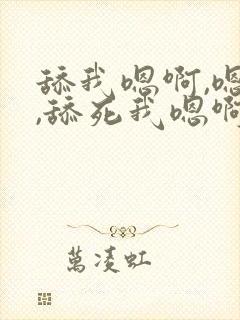 舔我嗯啊,嗯
,舔死我嗯啊
萬凌虹